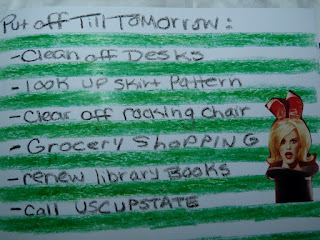 Put off Till Tomorrow:
- Clean off Desks
- look up skirt pattern
- Clear off rocking chair
- Grocery Shopping
- renew library Books
- Call USCUPSTATE